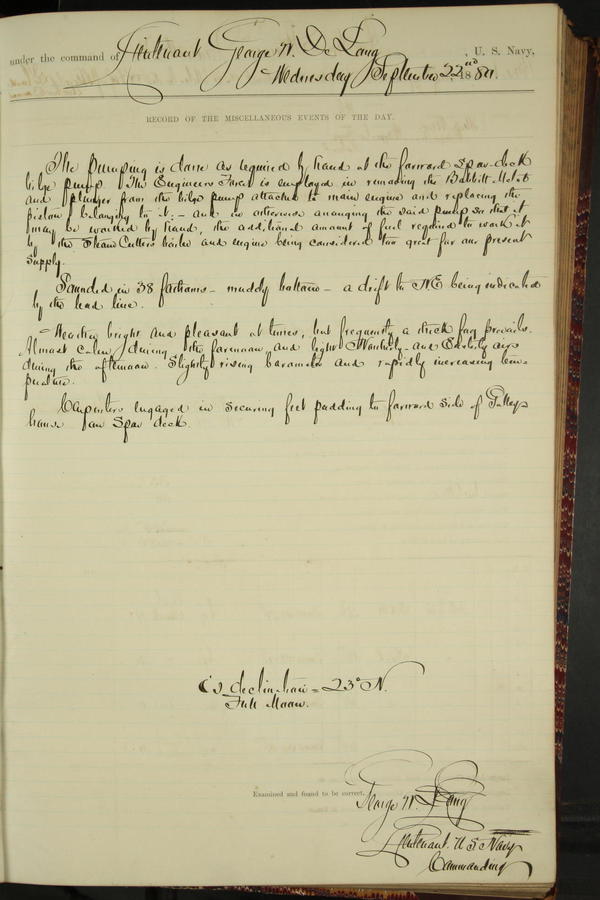 under the command of Lieutenant George W. De Long, U. S. Navy,
Wednesday September 22nd 1880.
RECORD OF THE MISCELLANEOUS EVENTS OF THE DAY.
The pumping is done as required by hand at the forward spar-deck
bilge pump. The Engineers Force is employed in removing the Babbitt-Metal
and plunger from the bilge pump attached to main engine and replacing the
piston belonging to it:- and in otherwise arranging the said pump so that it
may be worked by hand, the additional amount of fuel required to work it
by the Steam Cutters boiler and engine being considered too great for our present
supply.
Sounded in 38 fathoms - muddy bottom - a drift to NE being indicated
by the lead line.
Weather bright and pleasant at times, but frequently a thick fog prevails.
Almost calm during the forenoon, and light Northerly and Easterly airs
during the afternoon. Slightly rising barometer and rapidly increasing tem-
perature.
Carpenters engaged in securing felt padding to forward side of Galley
house on Spar deck.
☾s declination = 23° N.
Full Moon.
Examined and found to be correct.
George W. De Long
Lieutenant U S Navy
Commanding